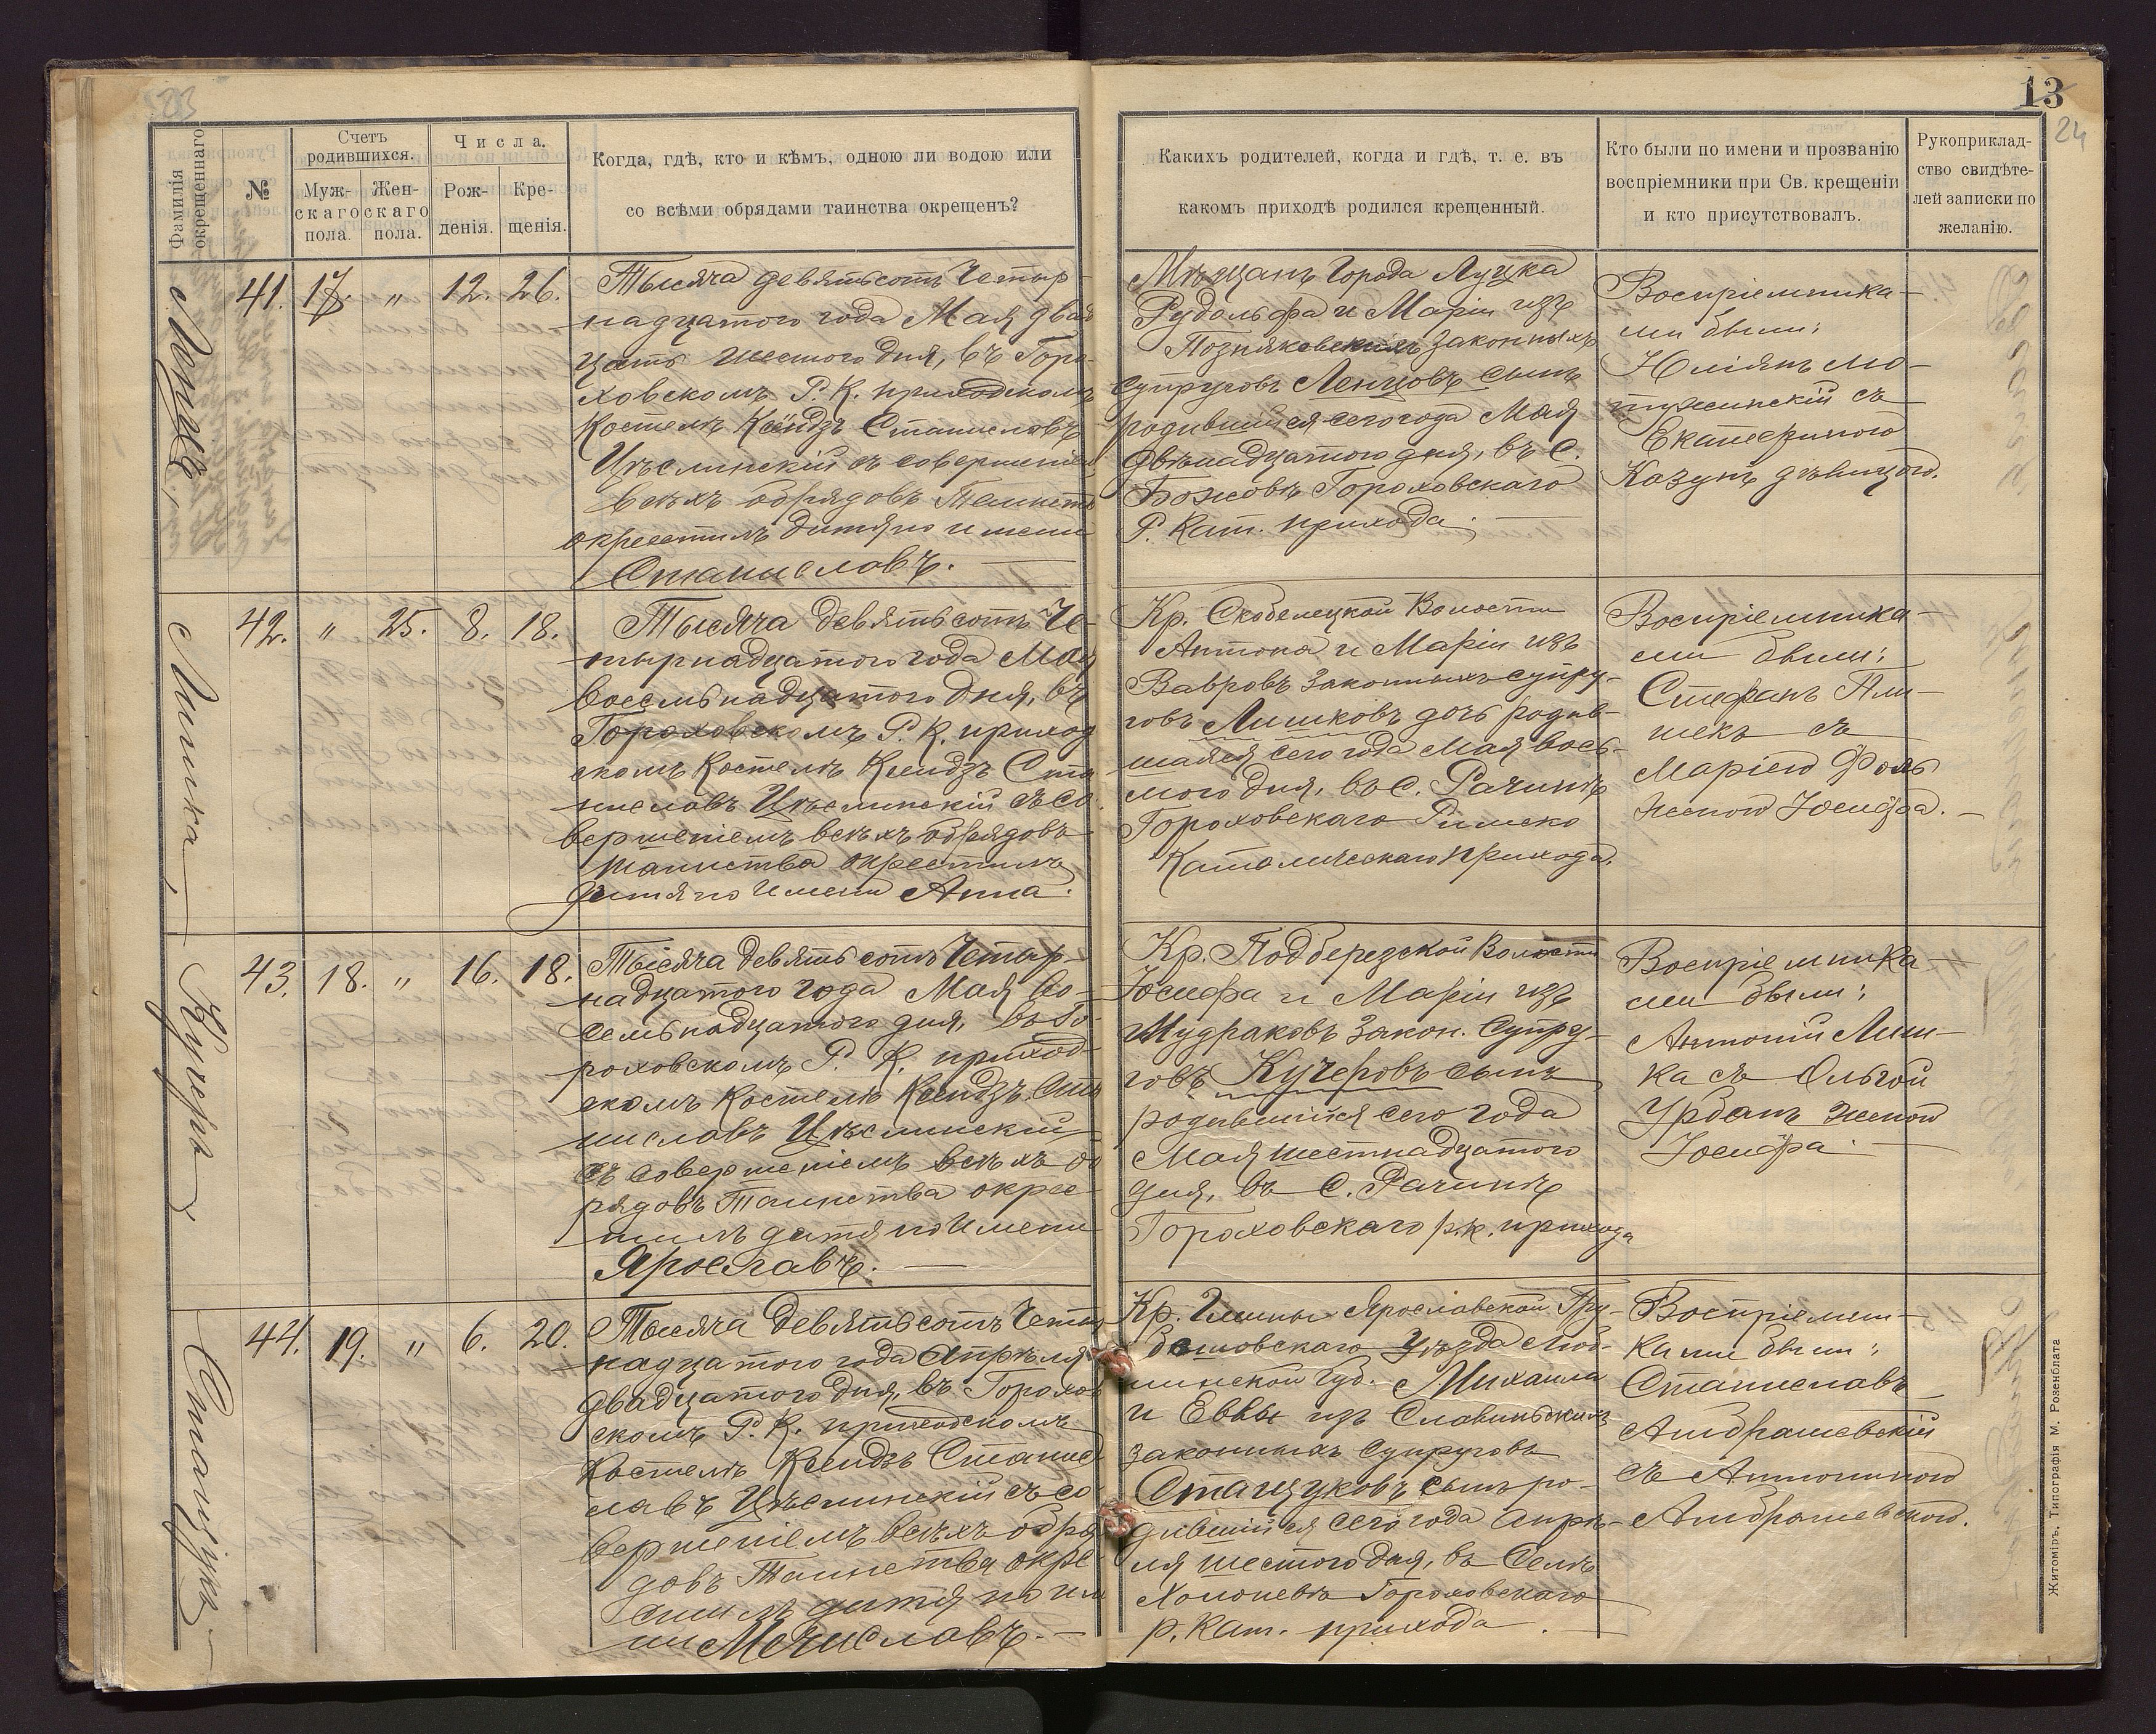 23
13
24
Фамилія
окрещеннаго
№
Счетъ
родившихся.
Муж-
скаго
пола.
Жен-
скаго
пола.
Числа.
Рож-
денія.
Кре-
щенія.
Когда, гдѣ, кто и кѣмъ, одною ли водою или
со всѣми обрядами таинства окрещенъ?
Какихъ родителей, когда и гдѣ, т. е. въ
какомъ приходѣ родился крещенный.
Кто были по имени и прозванію
воспріемники при Св. крещеніи
и кто присутствовалъ.
Рукоприклад-
ство свидѣте-
лей записки по
желанію.
41. 17. " 12. 26.
Тысяча девятьсотъ Четыр-
надцатого года Мая двад
цать шестого дня, въ Горо-
ховскомъ Р. К. приходскомъ
Костелѣ Ксендзъ Станиславъ
Цѣслинскій съ совершеніем
всѣхъ обрядовъ Таинств
окрестилъ дитя по имени
Станиславъ.
Мѣщанъ Города Луцка
Рудольфа и Маріи изъ
Позняковскихъ законныхъ
Супруговъ Ленцовъ сынъ
родившійся сего года Мая
Двѣнадцатого дня, въ С.
Божовъ Гороховскаго
Р. Кат. прихода.
Воспріемника-
ми были:
Юліянъ Мо-
тужинскій съ
Екатериною
Козунъ дѣвицею.
Лишка,
42. " 25. 8. 18.
Тысяча девятьсотъ Че-
тырнадцатого года Мая
Восемьнадцатого Дня, въ
Гороховскомъ Р. К. приход
скомъ Костелѣ Ксендзъ Ста
ниславъ Цѣслинскій съ со-
вершеніемъ всѣхъ обрядовъ
таинства окрестилъ
дитя по имени Анна.
Кр. Скобелецкой Волости
Антона и Маріи изъ
Вавровъ законныхъ супру-
говъ Лишковъ дочь родив-
шаяся сего года Мая вось-
мого Дня, въ С. Рачинѣ
Гороховскаго Римско
Католическаго прихода.
Воспріемника-
ми были:
Стефанъ Пли-
шекъ съ
Маріею Фоль
женою Іосифа.
Кучеръ,
43. 18. " 16. 18.
Тысяча девятьсотъ Четыр-
надцатого года Мая Во-
семьнадцатого дня, въ Го-
роховскомъ Р. К. приход-
скомъ Костелѣ Ксендзъ Ста
ниславъ Цѣслинскій
съ совершеніемъ всѣхъ об
рядовъ Таинства окрес
тилъ дитя по имени
Ярославъ.
Кр. Подберезской Волости
Іосифа и Маріи изъ
Мудраковъ Закон. Супру-
говъ Кучеровъ сынъ
родившійся сего года
Мая шестнадцатого
дня, въ С. Рачинѣ
Гороховскаго р.к. прихода
Воспріемника-
ми были:
Антоній Лиш-
ка съ Ольгой
Урбанъ женой
Іосифа.
Станцукъ
44. 19. " 6. 20.
Тысяча девятьсотъ Четыр
надцатого года Апрѣля
Двадцатого дня, въ Горохов
скомъ Р. К. приходскомъ
Костелѣ Ксендзъ Станис
лавъ Цѣслинскій съ со-
вершеніемъ всѣхъ обря
довъ Таинства окре-
стилъ дитя по име
ни Мечиславъ.
Кр. Гмины Ярославской Гру-
бешовскаго Уѣзда Люб-
линской Губ. Михаила
и Еввы изъ Славинскихъ
законныхъ супруговъ
Станцуковъ сынъ ро-
дившійся сего года Апрѣ-
ля шестого Дня, въ Селѣ
Холоневъ Гороховскаго
р. Кат. прихода.
Воспріемни-
ками были:
Станиславъ
Амбрашевскій
съ Антониною
Амбрашевскою.
Житоміръ, Типографія М. Розенблата